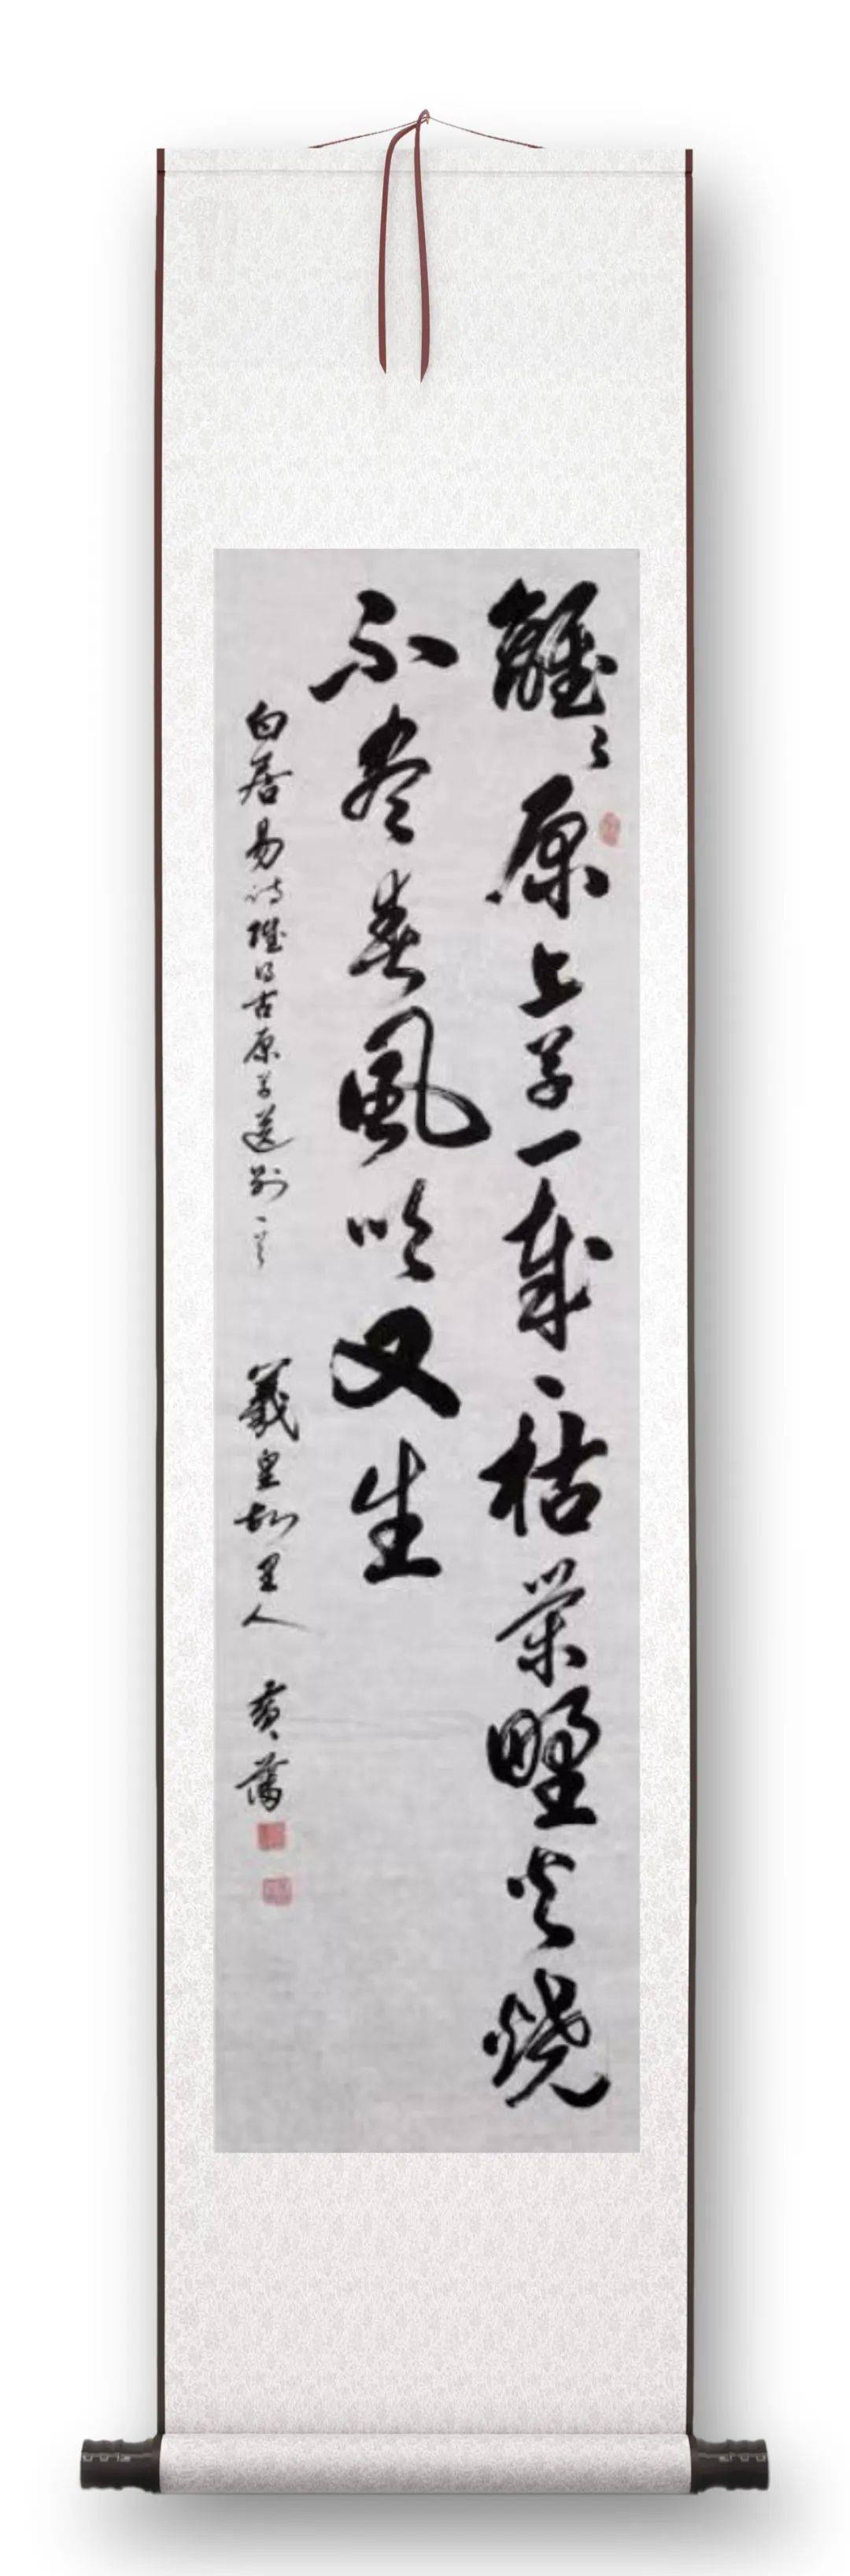 離々原上草一歲一枯榮野火燒
不尽春風吹又生
白居易诗賦得古原草送别一首 羲皇故里人